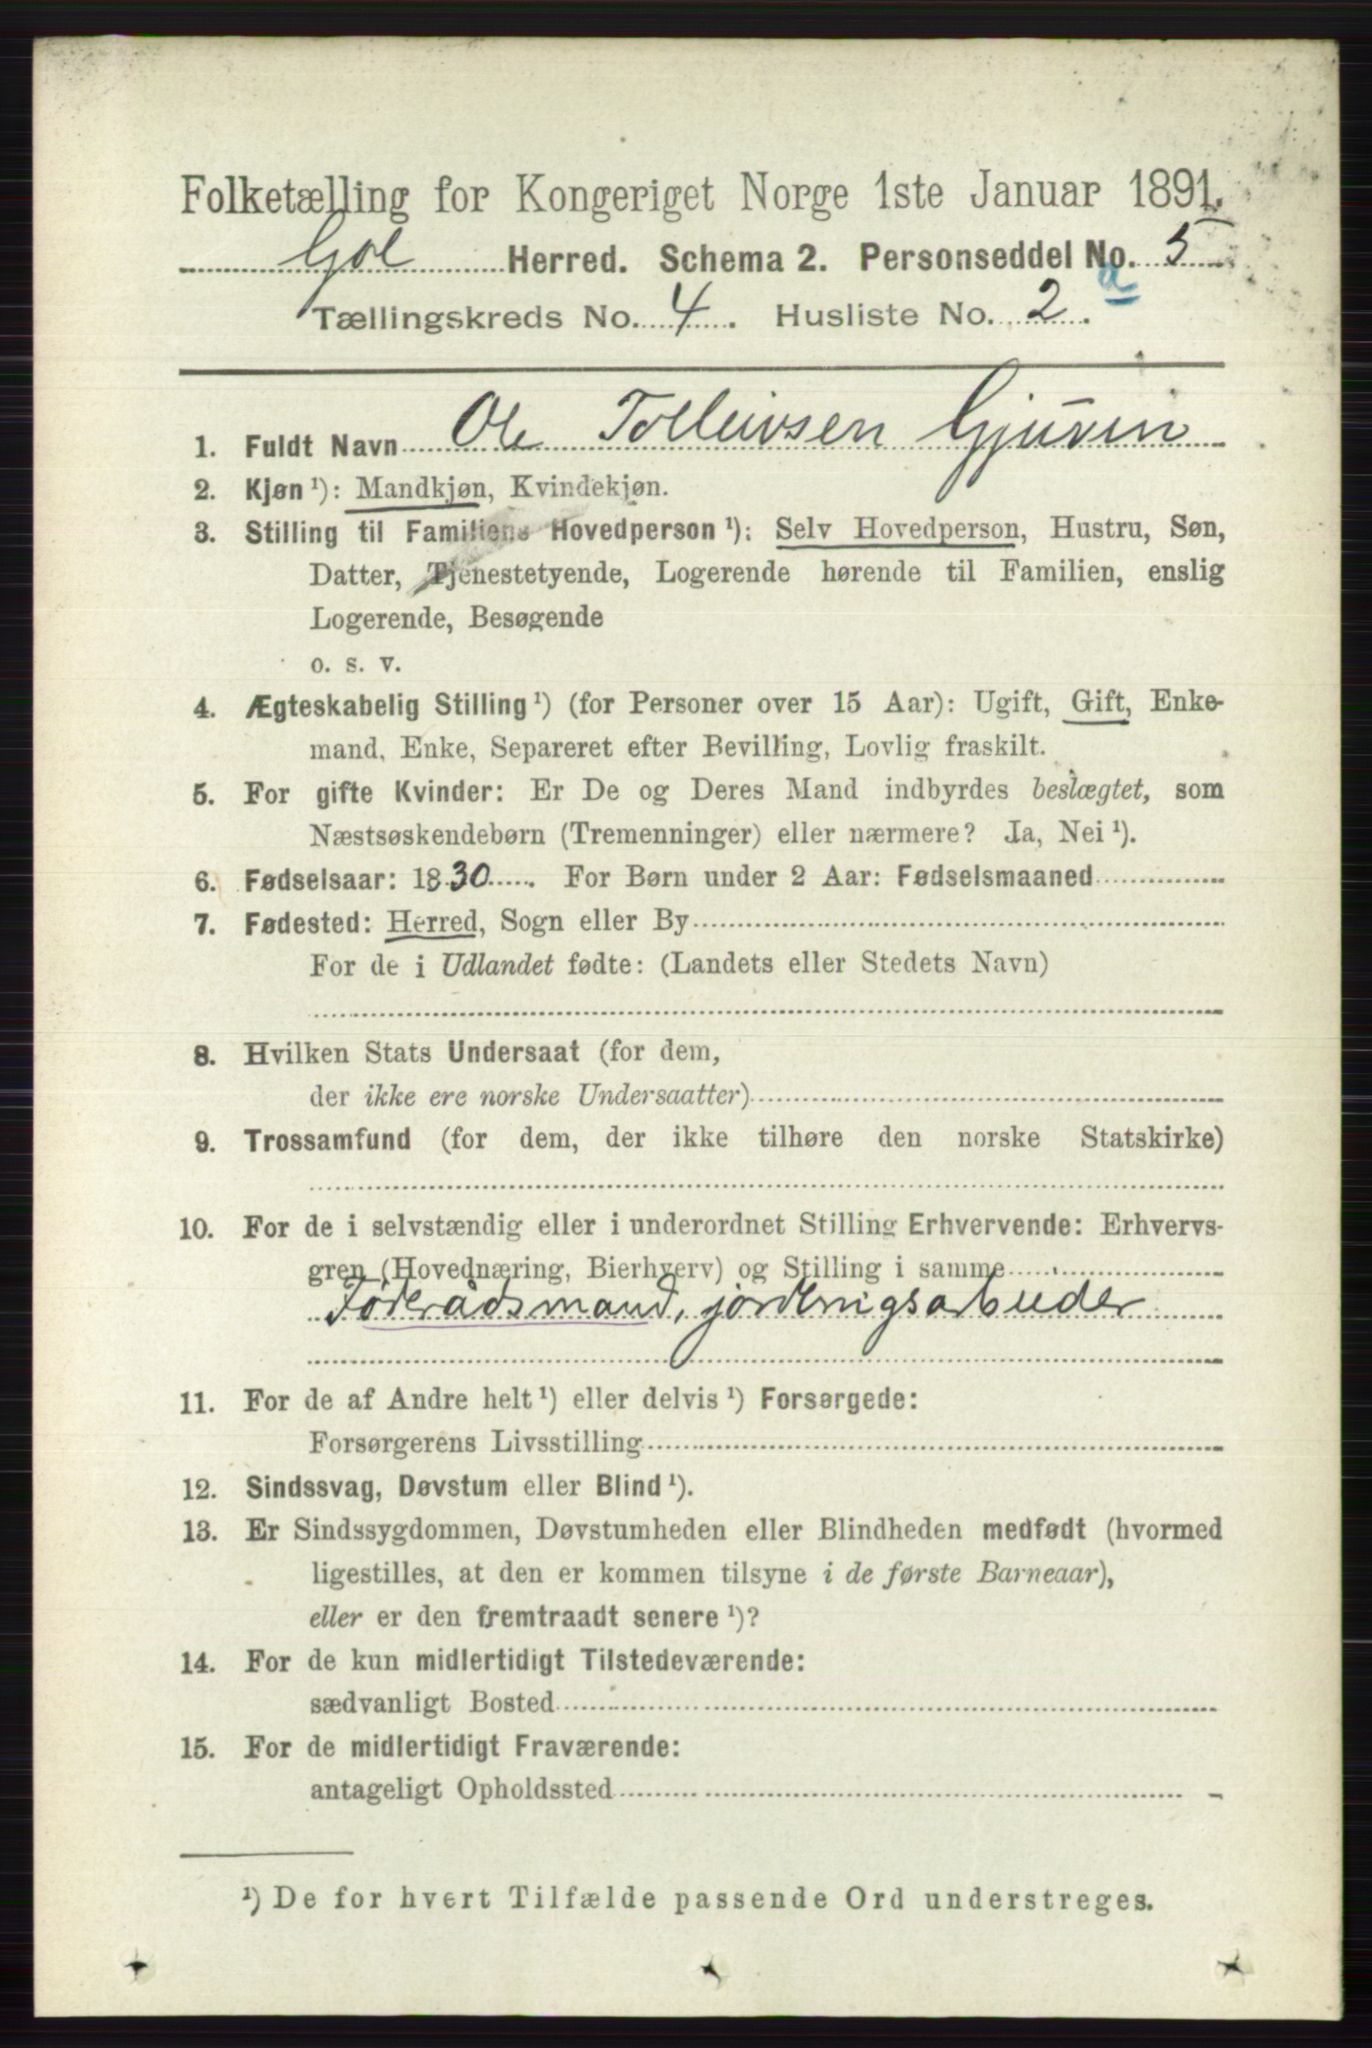 Folketælling for Kongeriget Norge 1ste Januar 1891.
Gol Herred. Schema 2. Personseddel No. 5
Tællingskreds No. 4. Husliste No. 2. a
1. Fuldt Navn Ole Tolleivsen Gjuvin
2. Kjøn ¹): Mandkjøn, Kvindekjøn.
3. Stilling til Familiens Hovedperson ¹): Selv Hovedperson, Hustru, Søn,
Datter, Tjenestetyende, Logerende hørende til Familien, enslig
Logerende, Besøgende
o. s. v.
4. Ægteskabelig Stilling ¹) (for Personer over 15 Aar): Ugift, Gift, Enke-
mand, Enke, Separeret efter Bevilling, Lovlig fraskilt.
5. For gifte Kvinder: Er De og Deres Mand indbyrdes beslægtet, som
Næstsøskendebørn (Tremenninger) eller nærmere? Ja, Nei ¹).
6. Fødselsaar: 1830. For Børn under 2 Aar: Fødselsmaaned
7. Fødested: Herred, Sogn eller By
For de i Udlandet fødte: (Landets eller Stedets Navn)
8. Hvilken Stats Undersaat (for dem,
der ikke ere norske Undersaatter)
9. Trossamfund (for dem, der ikke tilhøre den norske Statskirke)
10. For de i selvstændig eller i underordnet Stilling Erhvervende: Erhvervs-
gren (Hovednæring, Bierhverv) og Stilling i samme
Føderådsmand, jordbrugsarbeider
11. For de af Andre helt ¹) eller delvis ¹) Forsørgede:
Forsørgerens Livsstilling
12. Sindssvag, Døvstum eller Blind ¹).
13. Er Sindssygdommen, Døvstumheden eller Blindheden medfødt (hvormed
ligestilles, at den er kommen tilsyne i de første Barneaar),
eller er den fremtraadt senere ¹)?
14. For de kun midlertidigt Tilstedeværende:
sædvanligt Bosted
15. For de midlertidigt Fraværende:
antageligt Opholdssted
¹) De for hvert Tilfælde passende Ord understreges.